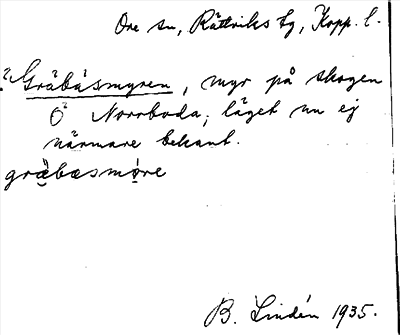 Ore sn, Rättviks tg, Kopp. l.
? Gräbäsmyren, myr på skogen
Ö Norrboda; läget nu ej
närmare bekant.
græ̀bæsmore
B. Lindén 1935.